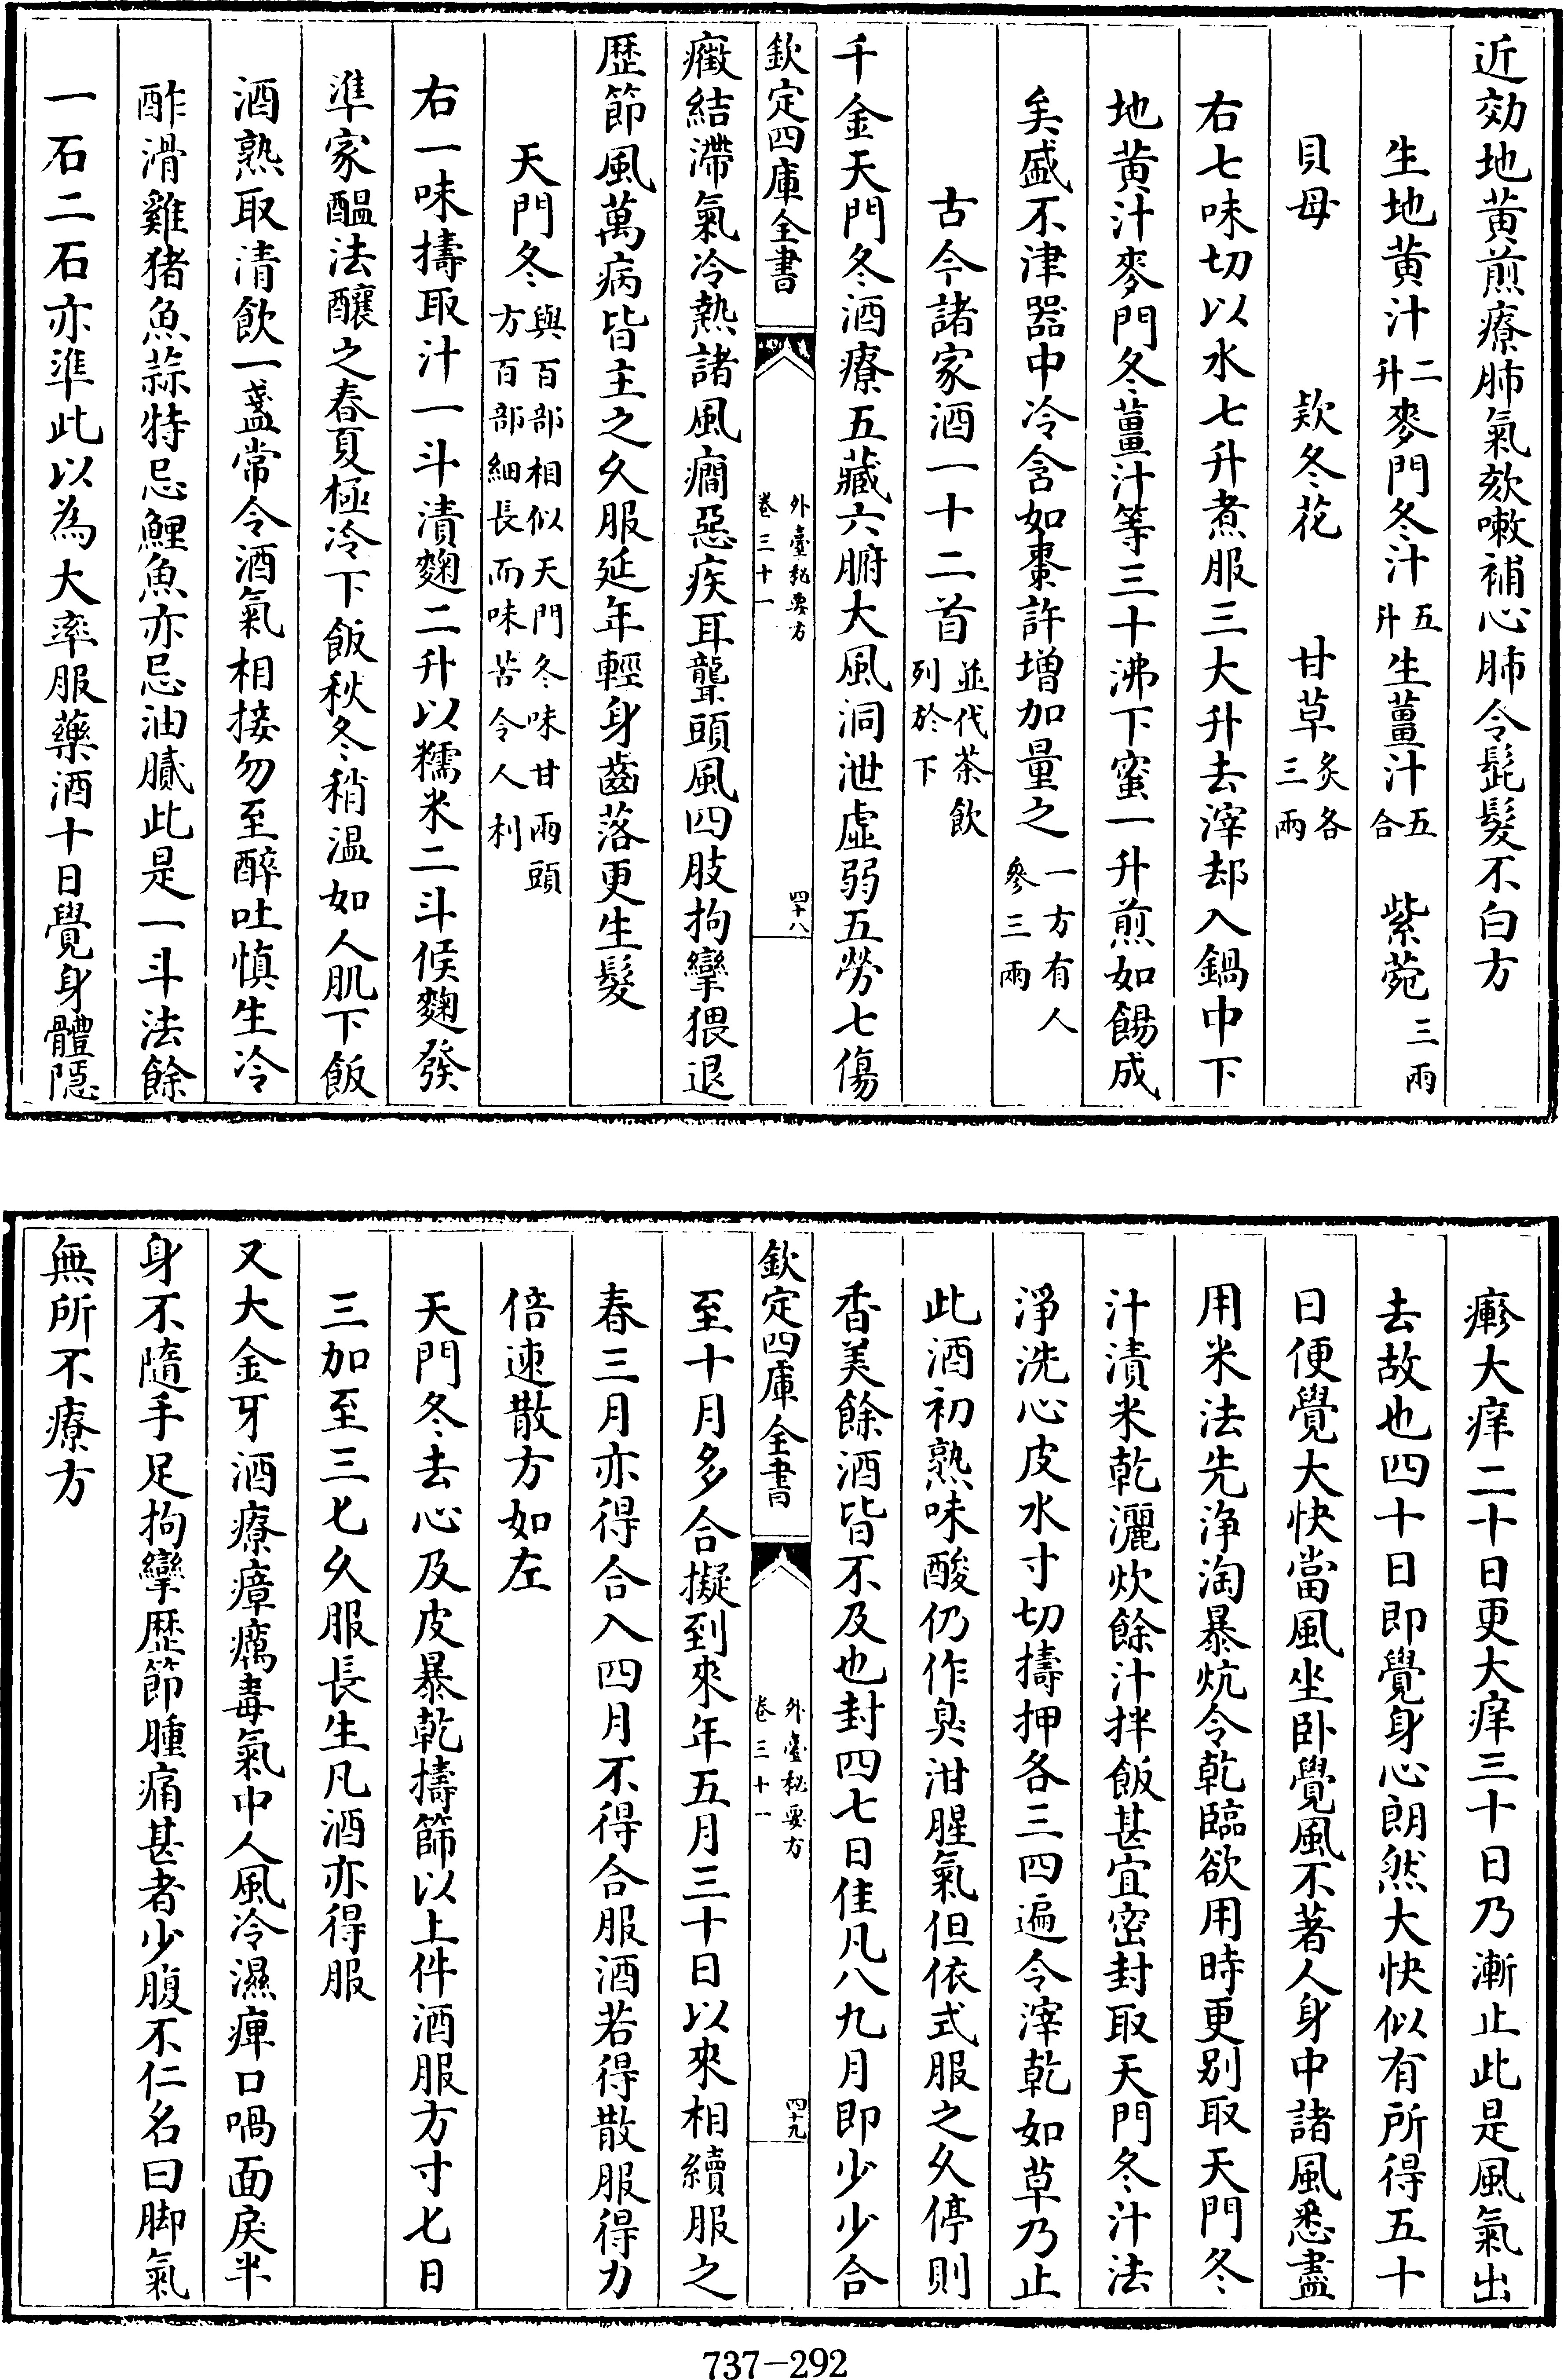 近効地黄煎療肺氣欬嗽補心肺令髭髮不白方
生地黄汁二升麥門冬汁五升生薑汁五合紫菀三兩
貝母 欵冬花 甘草炙各三兩
右七味切以水七升煮服三大升去滓却入鍋中下
地黄汁麥門冬薑汁等三十沸下蜜一升煎如餳成
矣盛不津器中冷含如棗許增加量之一方有人參三兩
古今諸家酒一十二首並代茶飲列於下
千金天門冬酒療五藏六腑大風洞泄虛弱五勞七傷
欽定四庫全書 外臺秘要方卷三十一 四十八
癥結滯氣冷熱諸風癎惡疾耳聾頭風四肢拘攣猥退
歷節風萬病皆主之久服延年輕身齒落更生髮
天門冬與百部相似天門冬味甘兩頭方百部細長而味苦令人利
右一味擣取汁一斗漬麴二升以糯米二斗候麴發
準家醖法釀之春夏極冷下飯秋冬稍温如人肌下飯
酒熟取清飲一盞常令酒氣相接勿至醉吐慎生冷
酢滑雞猪魚蒜特忌鯉魚亦忌油膩此是一斗法餘
一石二石亦準此以為大率服藥酒十日覺身體隱
𤺋大痒二十日更大痒三十日乃漸止此是風氣出
去故也四十日即覺身心朗然大快似有所得五十
日便覺大快當風坐卧覺風不著人身中諸風悉盡
用米法先浄淘暴炕令乾臨欲用時更别取天門冬
汁漬米乾灑炊餘汁拌飯甚宜密封取天門冬汁法
淨洗心皮水寸切擣押各三四遍令滓乾如草乃止
此酒初熟味酸仍作臭泔腥氣但依式服之久停則
香美餘酒皆不及也封四七日佳凡八九月即少少合
欽定四庫全書 外臺秘要方卷三十一 四十九
至十月多合擬到來年五月三十日以來相續服之
春三月亦得合入四月不得合服酒若得散服得力
倍速散方如左
天門冬去心及皮暴乾擣篩以上件酒服方寸匕日
三加至三匕久服長生凡酒亦得服
又大金牙酒療瘴癘毒氣中人風冷濕痺口喎面戾半
身不隨手足拘攣歷節腫痛甚者少腹不仁名曰脚氣
無所不療方
737-292